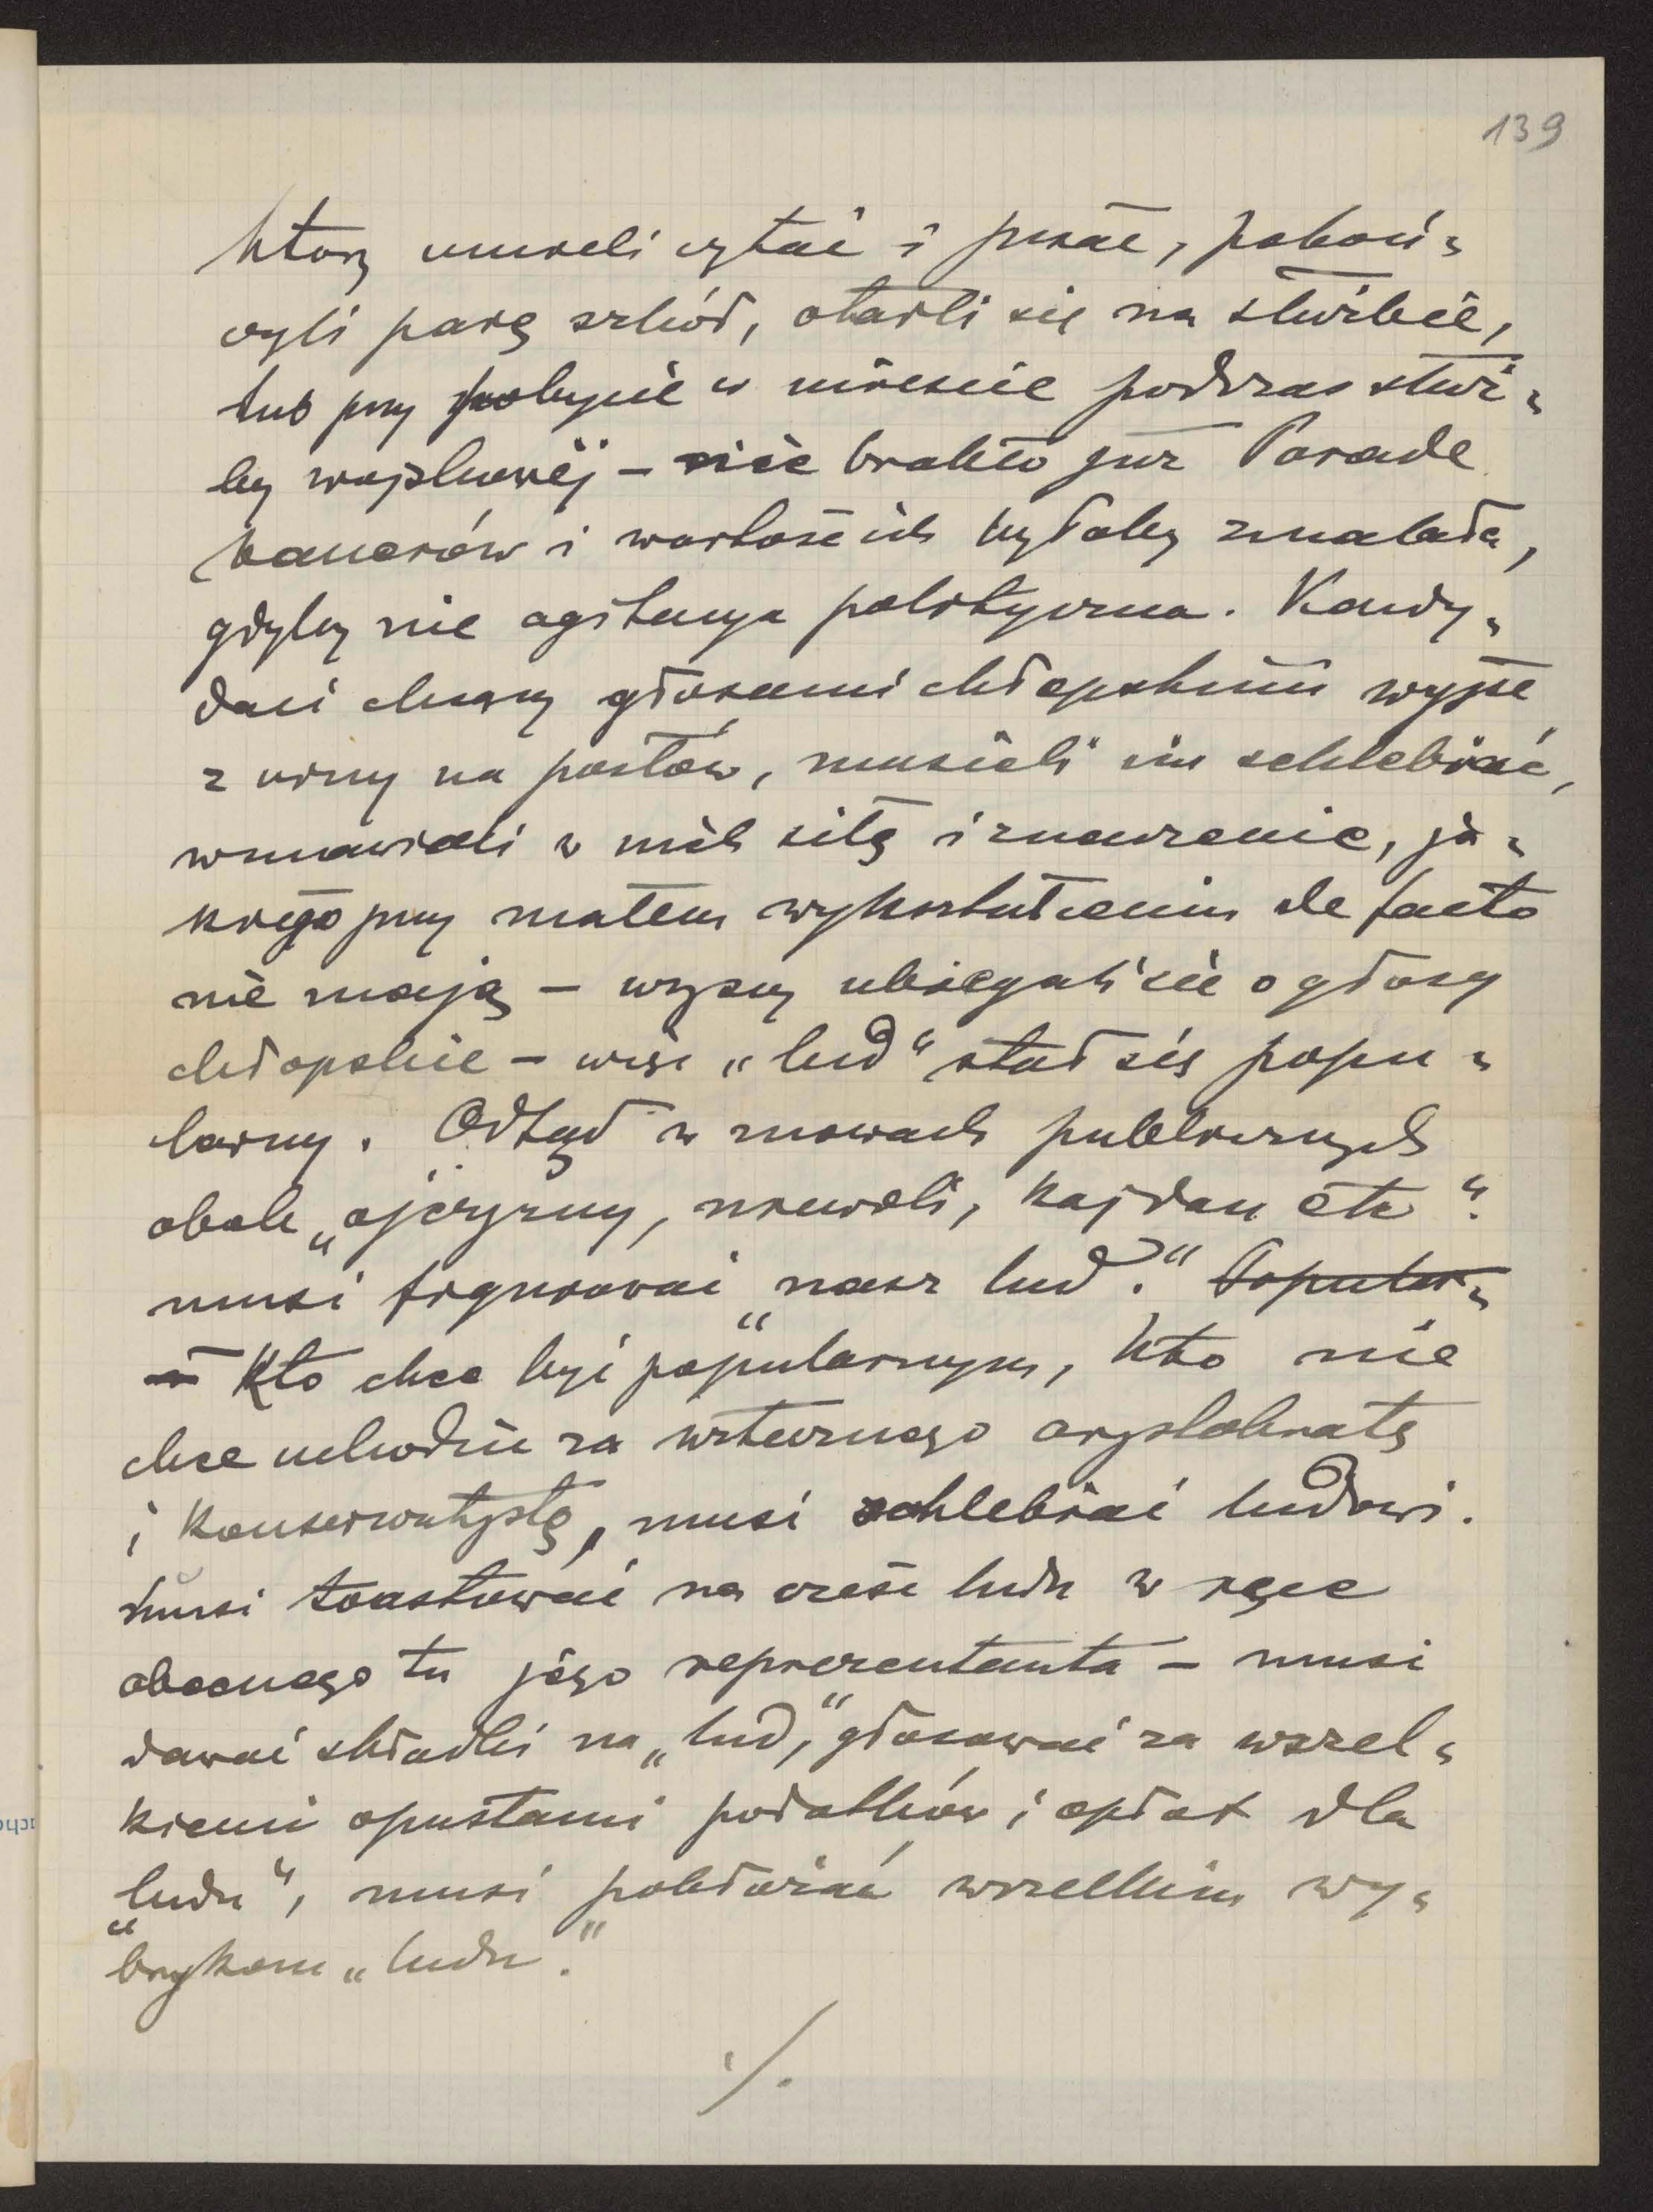 139
którzy umieli czytać i pisać, pokoń=
czyli parę szkół, otarli się na służbie,
lub przy pobycie w mieście podczas służ=
by wojskowej – nie brakło już Parade
bauerów i wartość ich byłaby zmalała,
gdyby nie agitacya polityczna. Kandy=
daci chcący głosami chłopskimi wyjść
z urny na posłów, musieli im schlebiać,
wmawiali w nich siłę i znaczenie, ja=
kiego przy małem wykształceniu de facto
nie mają – wszyscy ubiegali się o głosy
chłopskie – więc „lud“ stał się popu=
larny. Odtąd w mowach publicznych
obok „ojczyzny, niewoli, kajdan etc“
musi figurować „nasz lud.“ Popular=
Kto chce być popularnym, kto nie
chce uchodzić za wstecznego arystokratę
i konserwatystę, musi schlebiać ludowi.
musi toastować na cześć ludu w ręce
obecnego tu jego reprezentanta – musi
dawać składki na „lud,“ głosować za wszel=
kiemi opustami podatków i opłat dla
„ludu“, musi pobłażać wszelkim wy=
brykom „ludu.“
./.